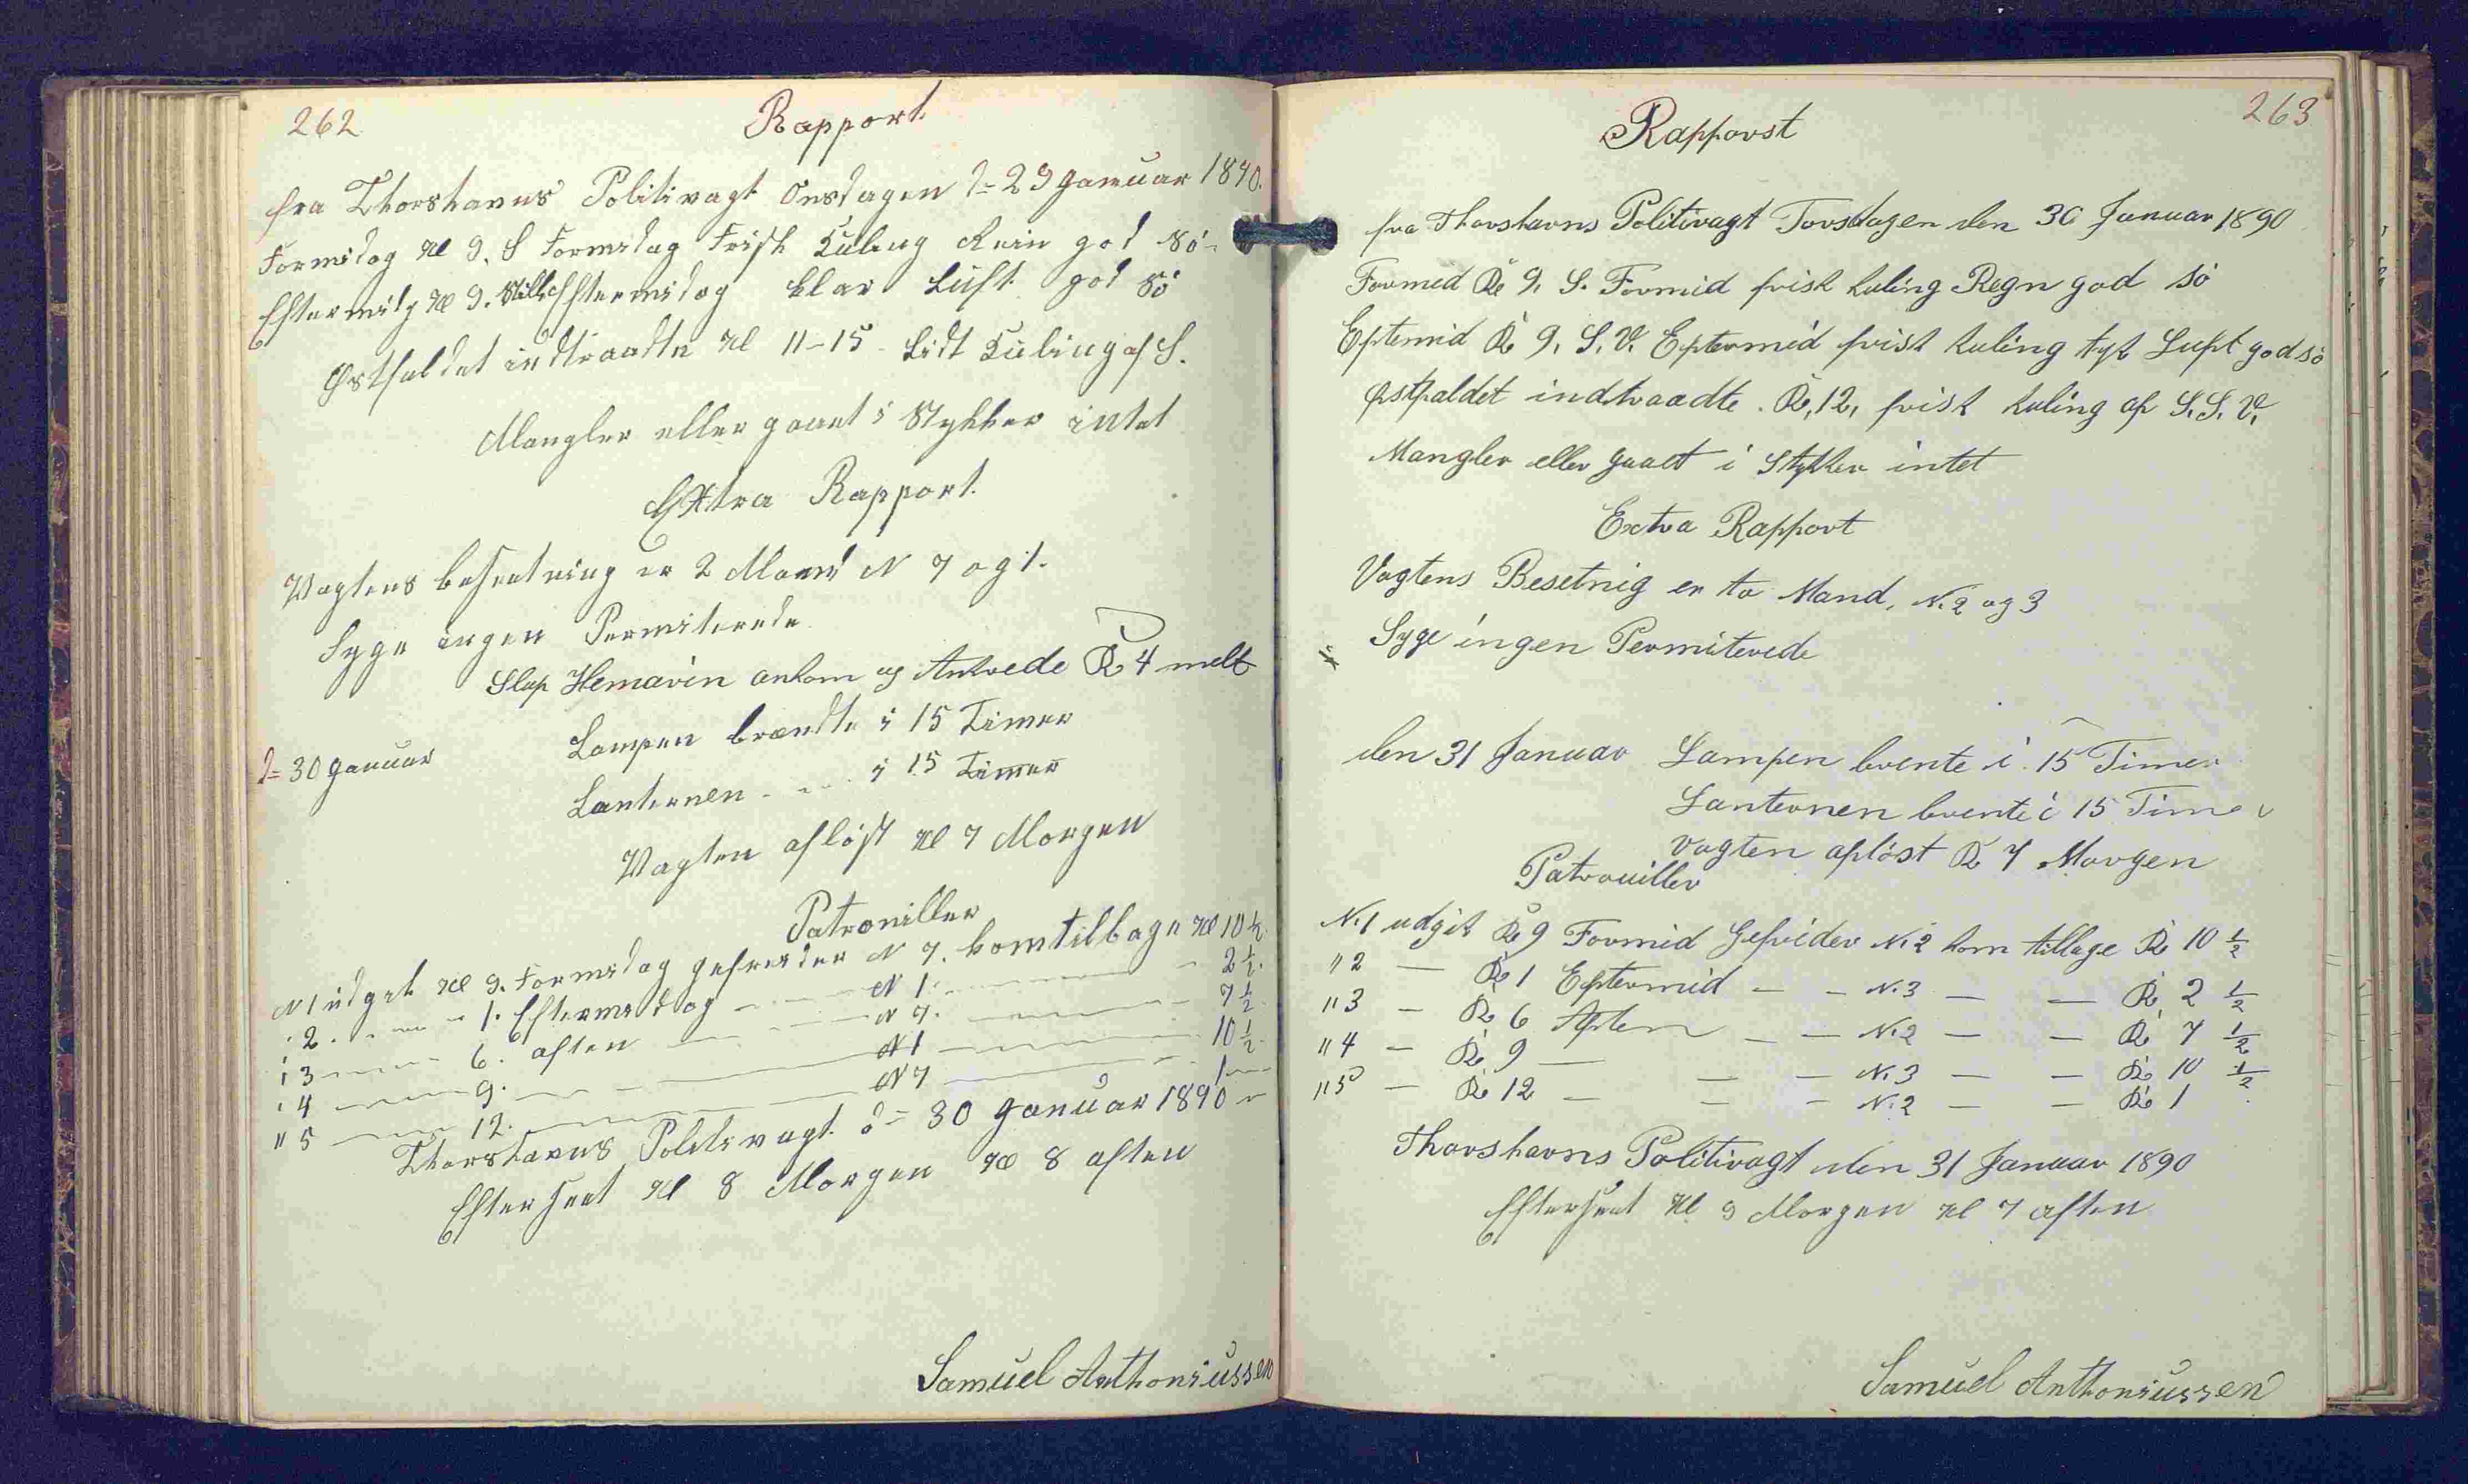 262
Rapport
fra Thorshavns Politivagt Onsdagen d= 29 Januar 1890.
Formidag Kl 9. S Formidag Frisk Kuling Rein god Sö
Eftermidg Kl 9. Stille Eftermidag klar Luft god Sö
Østfaldet indtraadte Kl 11-15 Lidt Kuling af S.
Mangler eller gaaet i Stykker intet
Extra Rapport.
Vagtens besætning er 2 Mand N 7 og 1.
Syge ingen Permiterede
Slup Hemavin ankom og Ankrede Kl 4 melt
d= 30 Januar Lampen brændte i 15 Timer
Lanternen - - - i 15 Timer
Vagten afløst Kl 7 Morgen
Patrouiller
N 1 udgik Kl 9. Formidag gefreider N 7. kom tilbage Kl 10 ½
" 2 - - - 1. Eftermidag - - N 1. - - 2 ½
" 3 - - - 6. aften - - N 7. - - 7 ½
" 4 - - - 9. - - N 1 - - 10 ½
" 5 - - - 12. - - N 7 - - 1 -
Thorshavns Politivagt d= 30 Januar 1890
Efterseet Kl 8 Morgen Kl 8 aften
Samuel Anthoniussen
263
Rapporst
fra Thorshavns Politivagt Torsdagen den 30 Januar 1890
Formed Kl 9, S. Formid frisk kuling Regn god sö
Eftemid Kl 9, S.V. Eftermid frisk kuling tyk Luft god sö
Østfaldet indtraadte. Kl, 12, frisk kuling af S.S.V.
Mangler eller gaaet i Stykker intet
Extra Rapport
Vagtens Besetnig er to Mand, N. 2 og 3
Syge ingen Permiterede
den 31 Januar Lampen brente i 15 Timer
Lanternen brente i 15 Timer
vagten aflöst Kl 7 Morgen
Patrouiller
N. 1 udgik Kl 9 Formid Gefrider N. 2 kom tillage Kl 10 ½
" 2 — Kl 1 Eftermid — — N. 3 — — Kl 2 ½
" 3 — Kl 6 Aften — — N. 2 — — Kl 7 ½
" 4 — Kl 9 — — — N. 3 — — Kl 10 ½
" 5 — Kl 12 — — — N. 2 — — Kl 1
Thorshavns Politivagt den 31 Januar 1890
Efterseet Kl 9 Morgen Kl 7 aften
Samuel Anthoniussen